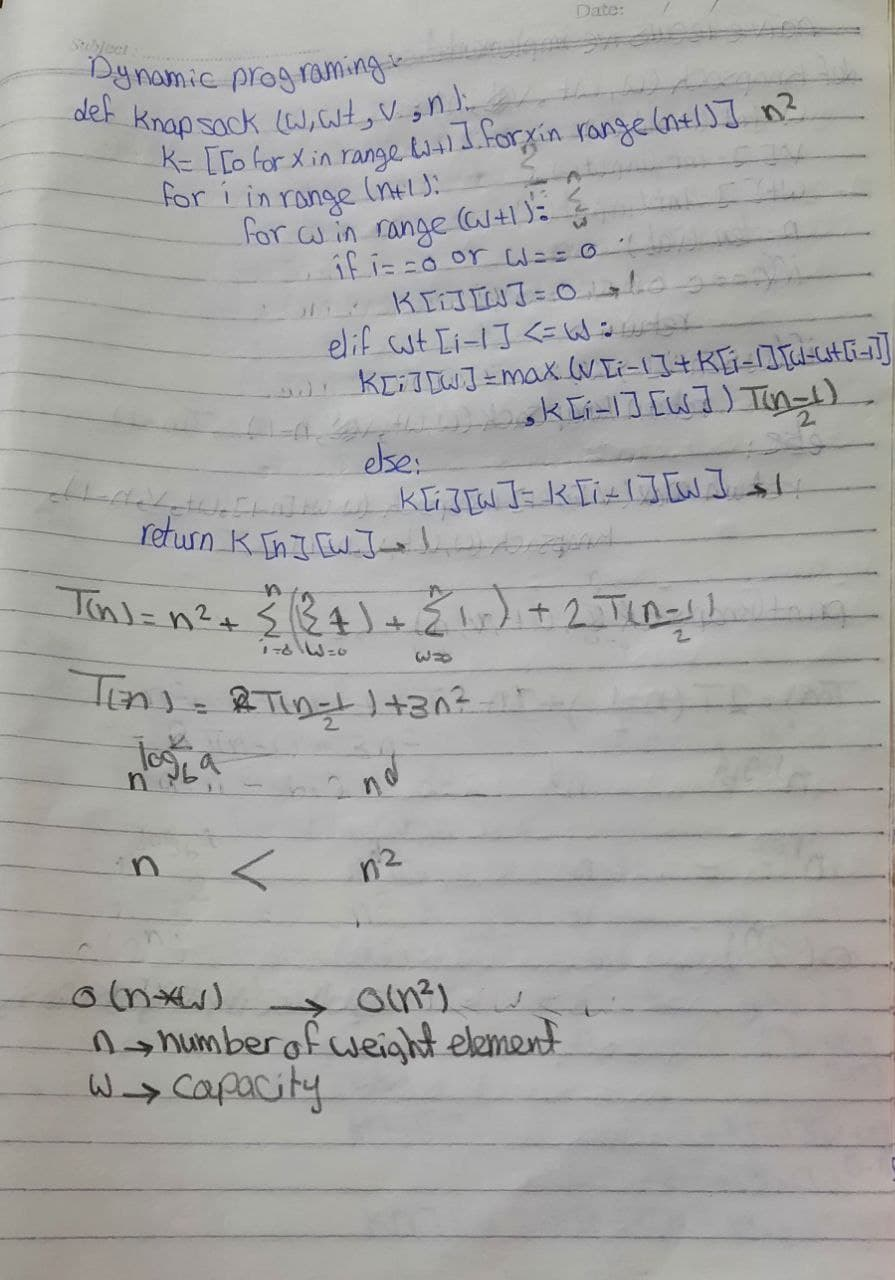 Date: / /
Subject
Dynamic programing:
def knapsack (W, wt, v, n):
K= [[0 for x in range W+1] for x in range (n+1)] n²
for i in range (n+1):
for w in range (W+1):
if i==0 or w==0
K[i][w]=0 → 1
elif wt[i-1] <= w:
K[i][w]=max (V[i-1]+K[i-1][w-wt[i-1]]
, K[i-1][w]) T(n-1)/2
else:
K[i][w]= K[i-1][w] → 1
return K[n][w] → 1
T(n) = n² + n∑i=0 (n∑w=0 1) + n∑w=0 1) + 2 T(n-1)/2
T(n) = 2T(n-1/2) + 3n²
n log b a n d
n < n²
O(n*W) → O(n²)
n → number of weight element
W → capacity